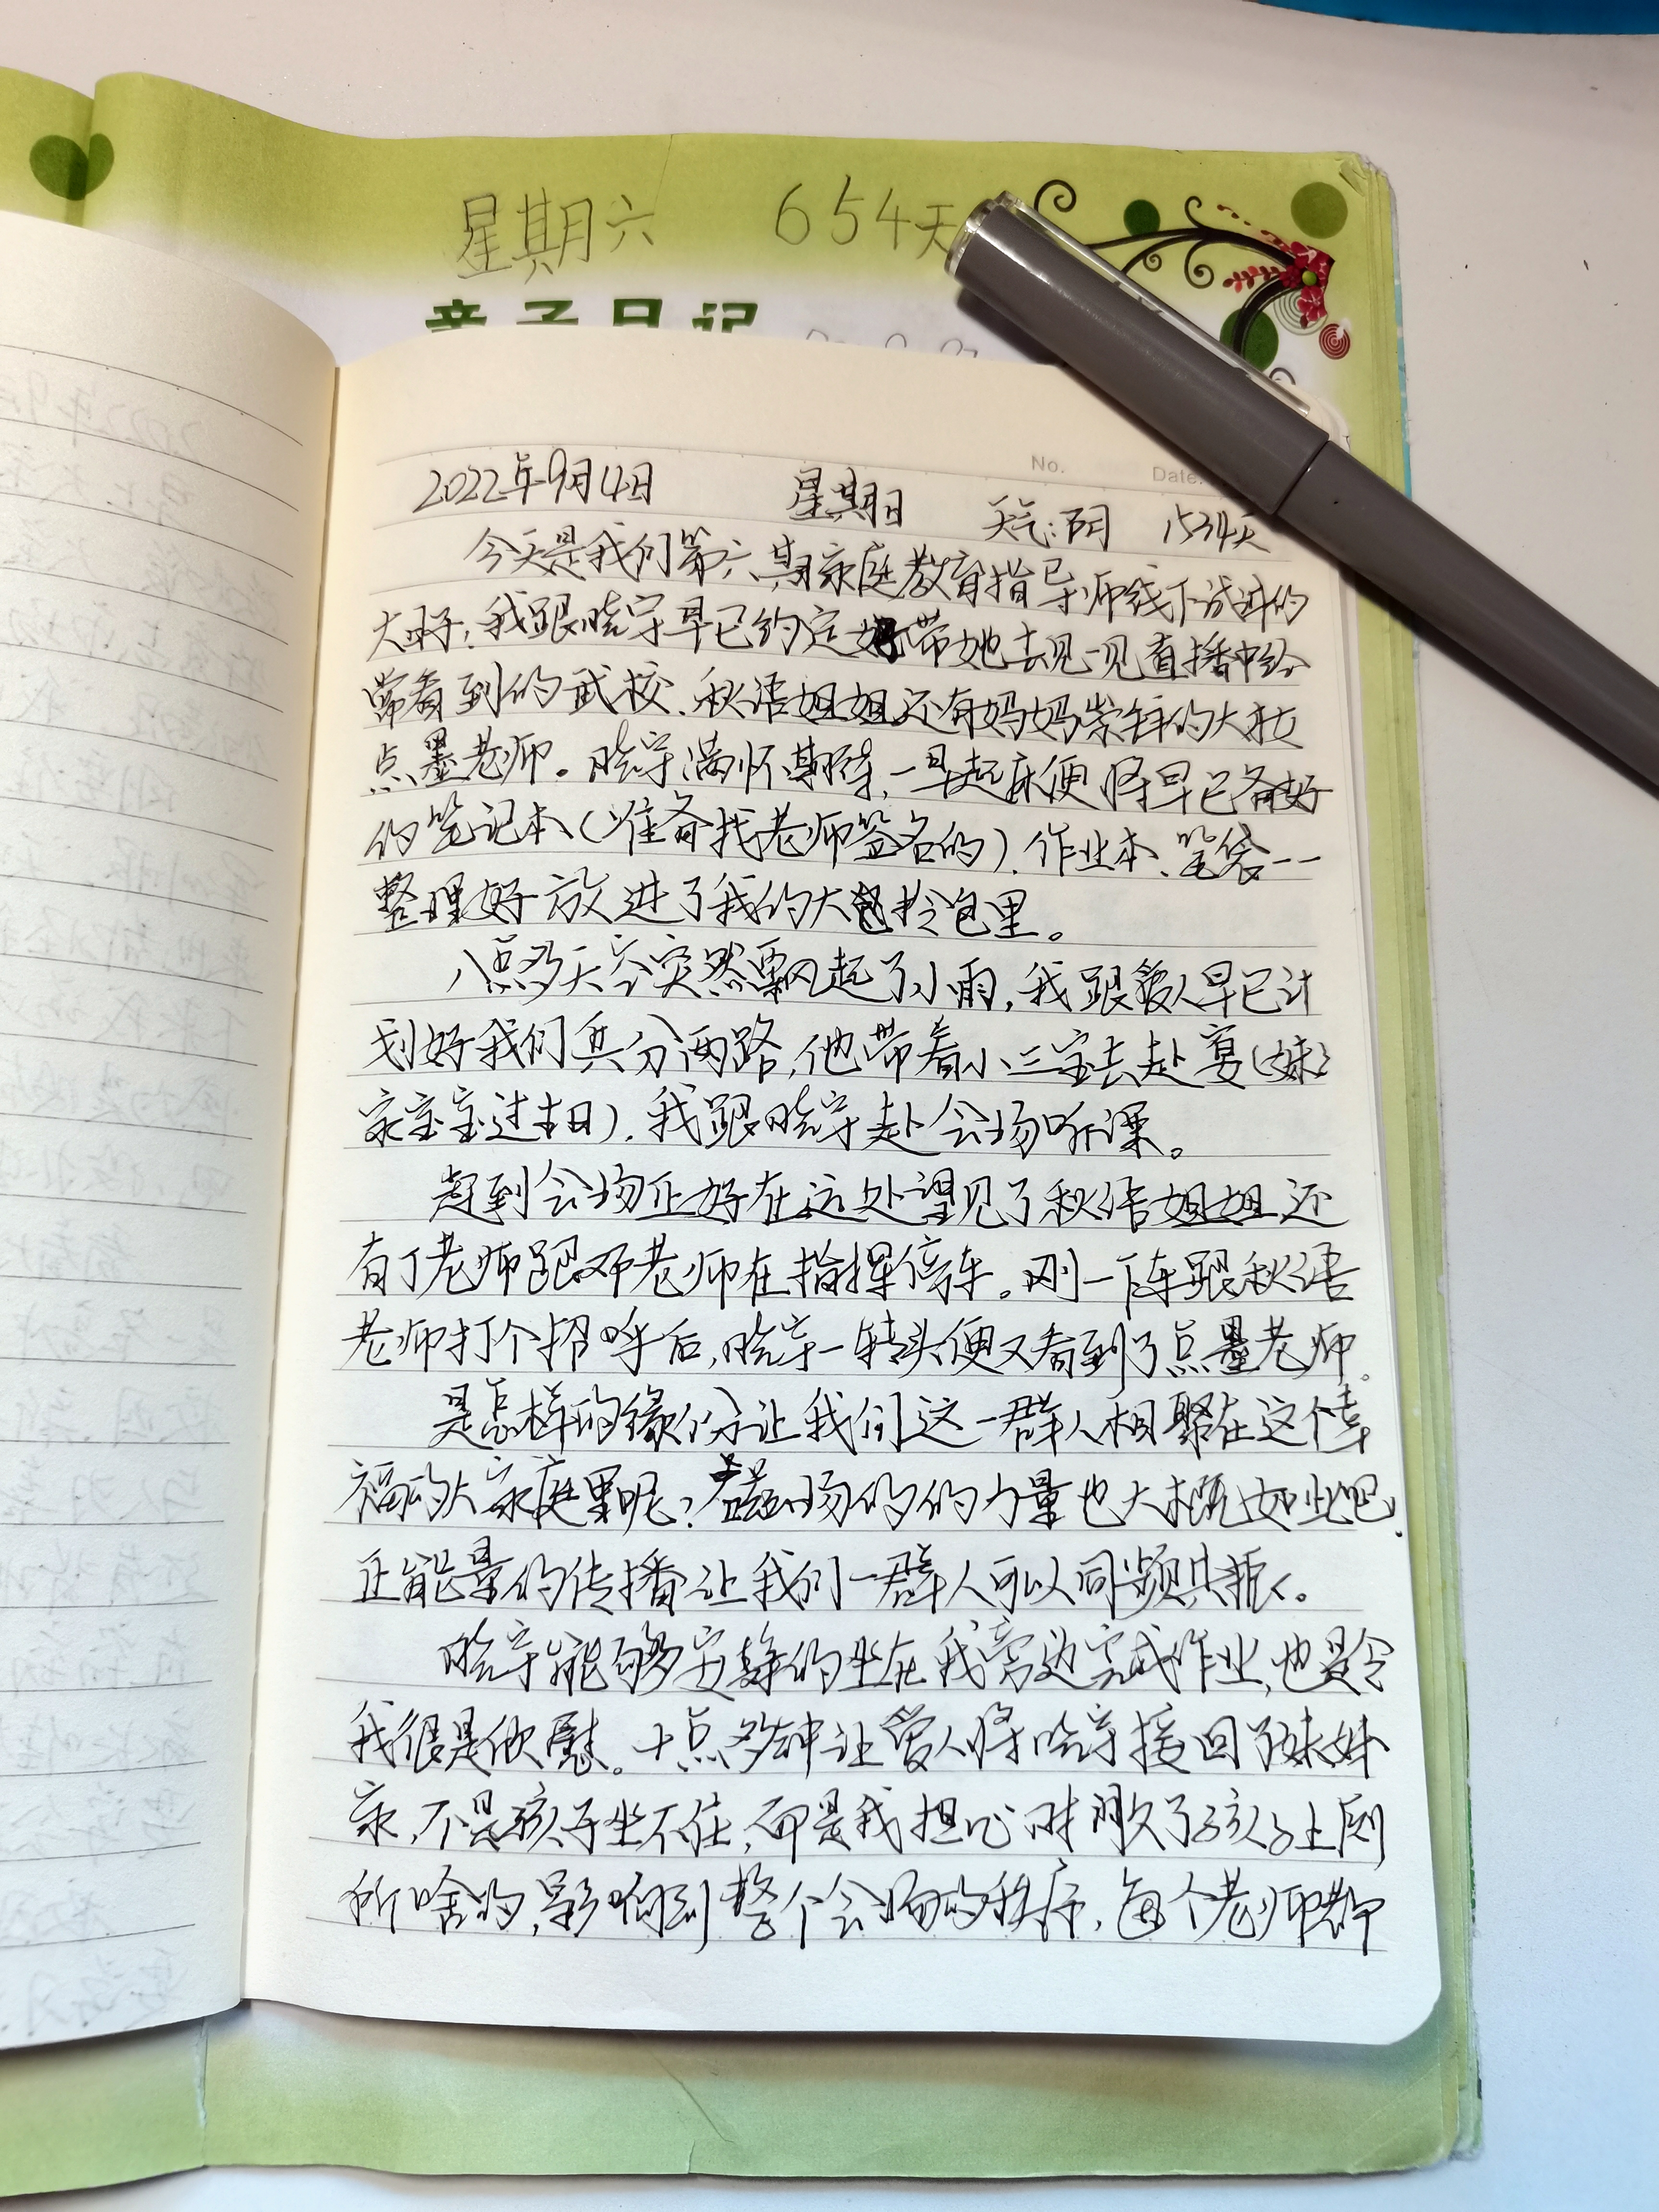 星期六 654天
亲子日记
No. Date:
2022年9月4日 星期日 天气:阴 1534天
今天是我们第六期家庭教育指导师线下培训的
大日子,我跟晓宇早已约定好带她去见一见直播中经
常看到的武校、秋语姐姐还有妈妈崇拜的大
点墨老师。晓宇满怀期待,一早起床便将早已备好
的笔记本(准备找老师签名的)、作业本、笔袋一一
整理好放进了我的大包拎包里。
八点多天空突然飘起了小雨,我跟爱人早已计
划好我们兵分两路,他带着小三宝去赴宴(妹妹
家宝宝过生日),我跟晓宇赴会场听课。
赶到会场正好在远处望见了秋语姐姐还
有丁老师跟邓老师在指挥停车。刚一下车跟秋语
老师打个招呼后,晓宇一转头便又看到了点墨老师。
是怎样的缘份让我们这一群人相聚在这个幸
福的大家庭里呢?磁场的的力量也大概如此吧,
正能量的传播让我们一群人可以同频共振。
晓宇能够安静的坐在我旁边完成作业,也是令
我很是欣慰。十点多钟让爱人将晓宇接回了妹妹
家,不是孩子坐不住,而是我担心时间久了孩子上厕
所啥的,影响到整个会场的秩序,每个老师都